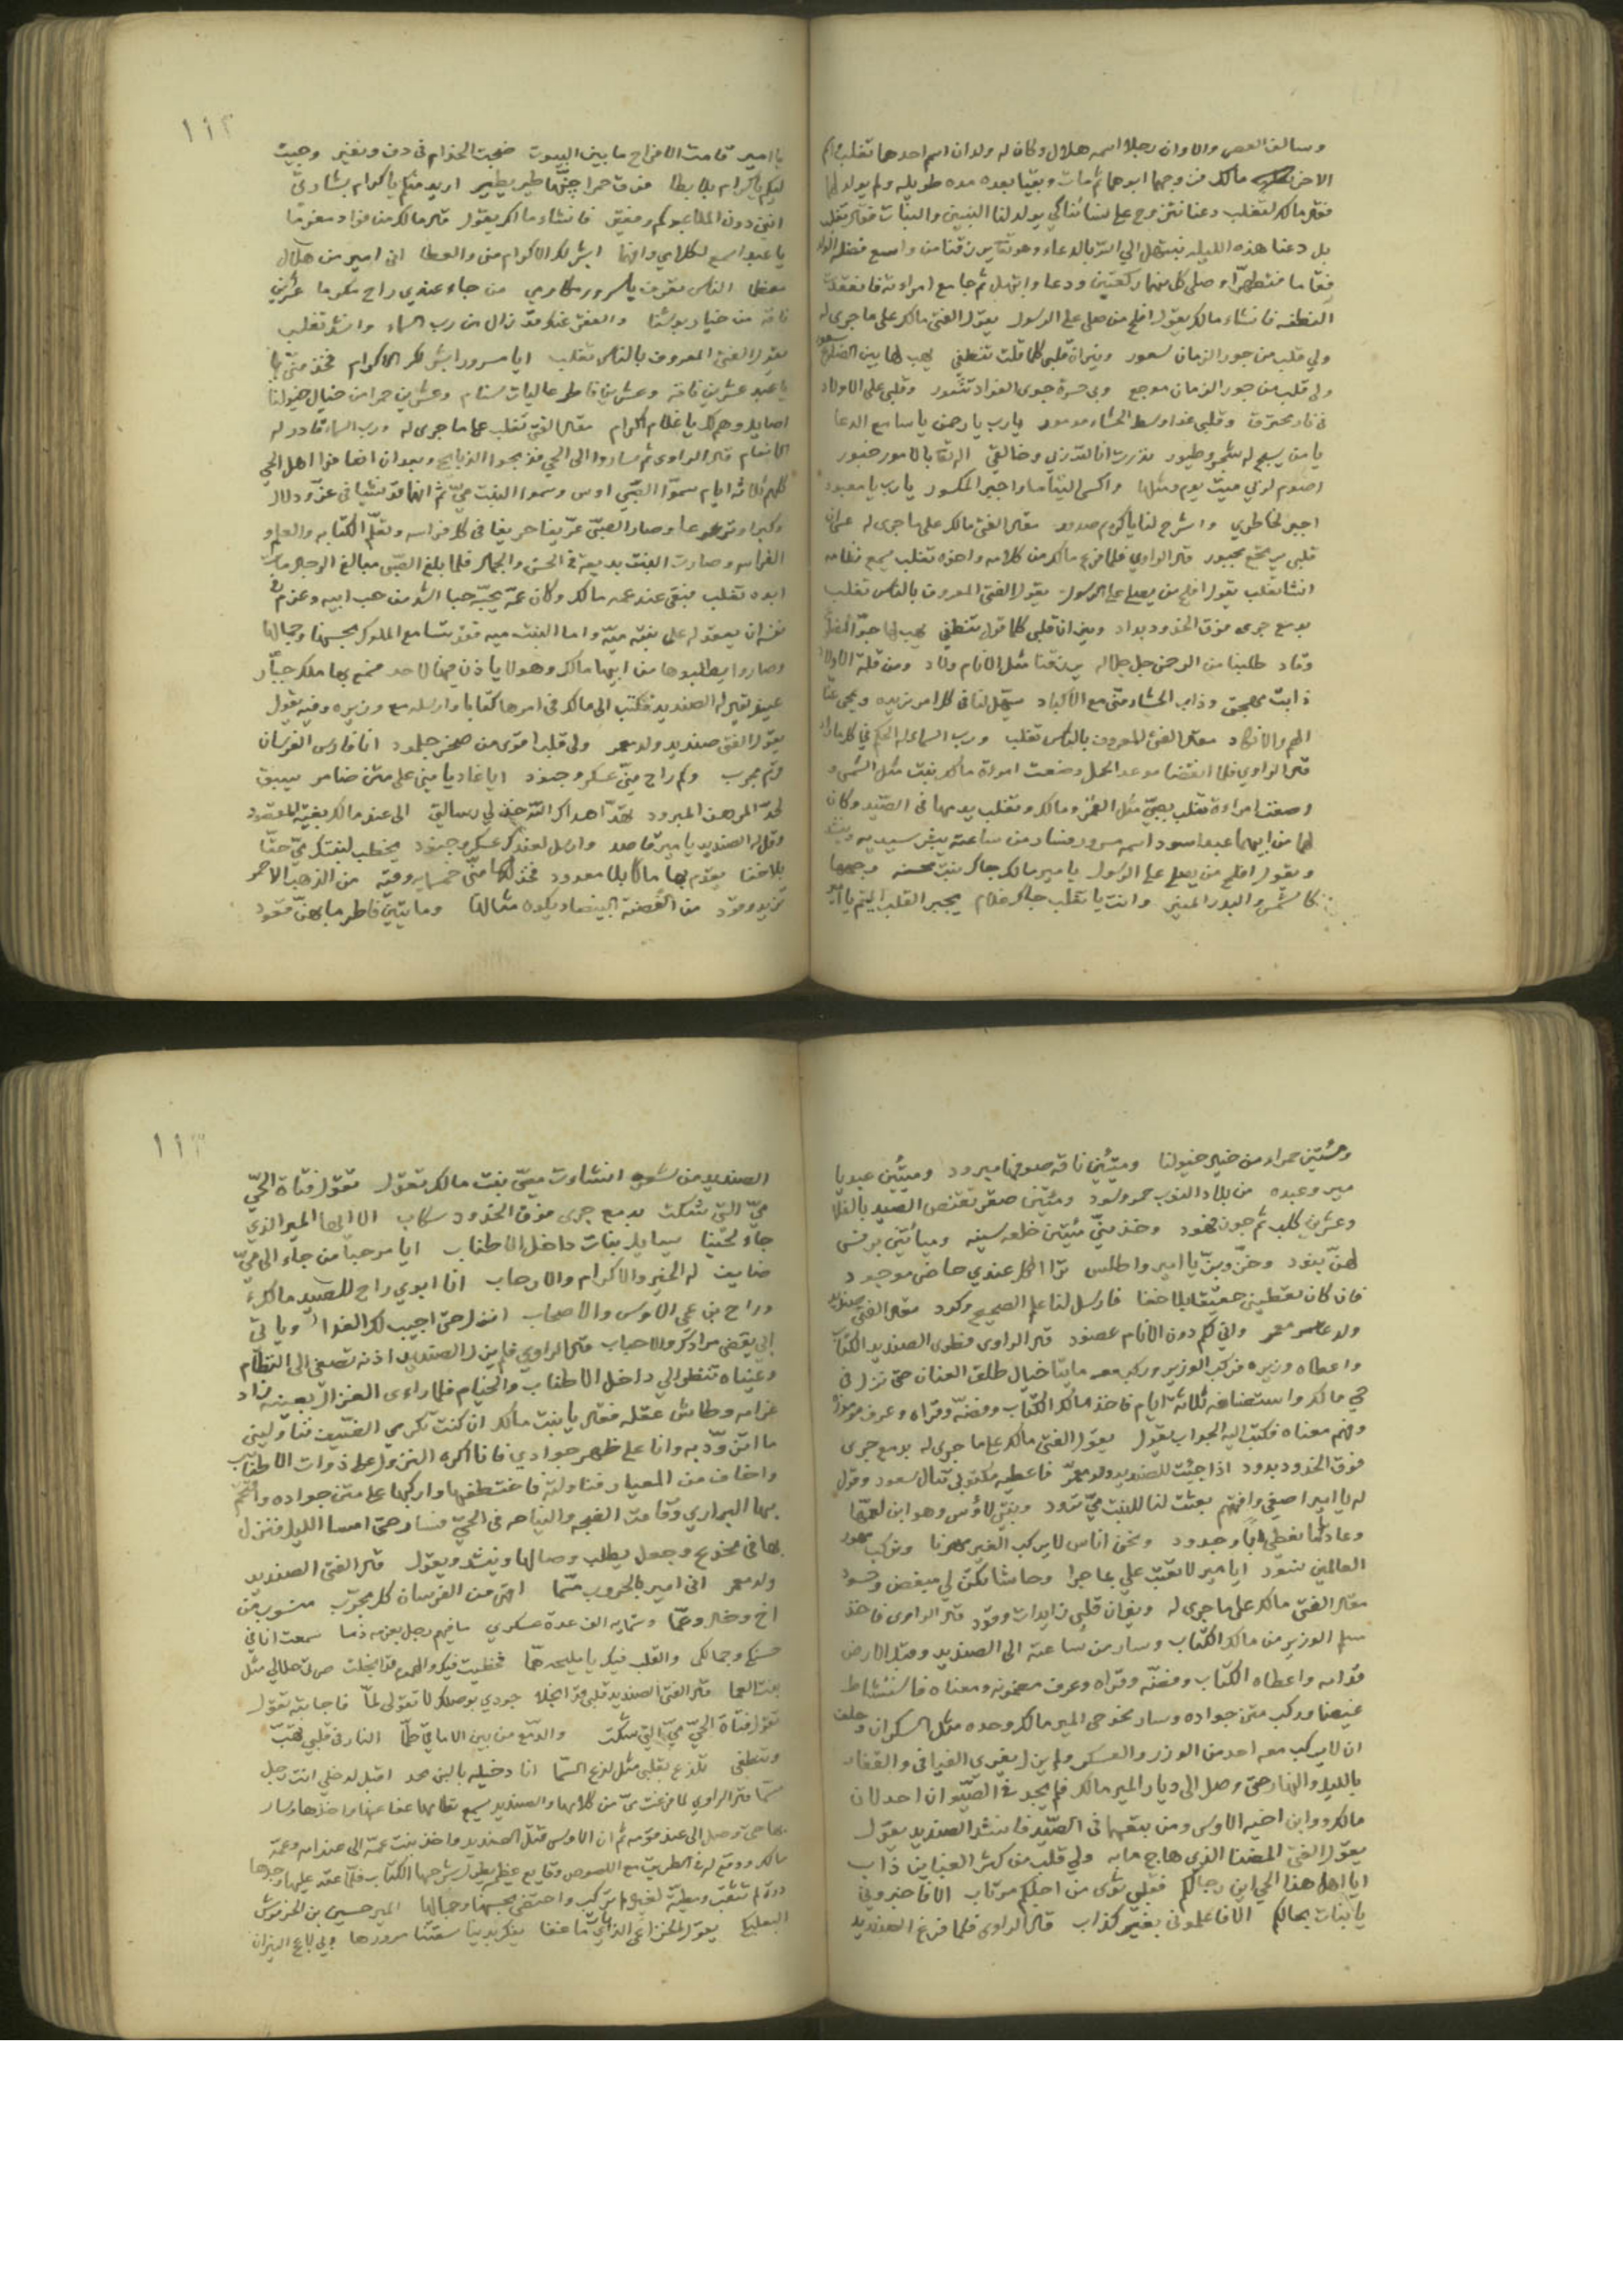 وسالف العصر والاوان رجلا اسمه هلال وكان له ولدان اسم احدهما تغلب واسم
الاخر مالك فزوجهما ابوهما ثم مات وبقيا بعده مده طويله ولم يولد لهما
فقال مالك لتغلب دعنا نتزوج على نسائنا كي يولد لنا البنين والبنات فقال تغلب
بل دعنا هذه الليله نبتهل الي الله بالدعاء وهو تعا يرزقنا من واسع فضله
فقاما فتطهرا وصلى كل منهما ركعتين ودعا وابتهل ثم جامع امراءته فانعقدت
النطفه فانشاء مالك يقول افلح من صلى على الرسول يقول الفتى مالك على ما جرى له
ولي قلب من جور الزمان نيران قلبي كلما قلت تنطفي لهب لها بين الضلوع
ولي قلب من جور الزمان موجع وبي حسرة جوى الفواد وقلبي على الاولاد
في نار محترق وقلبي غدا وسط الحشاء يارب يا رحمن يا سامع الدعا
يا من يسبح له وطيور نذرت انا لله ربي وخالقي بالامور خبور
اصوم لربي ميت يوم ومثلها واكسي اليتاما واجبر المكسور يارب يا معبود
اجبر لخاطري واشرح لنا يا كريم صدور مقال الفتى مالك على ما جرى له عسان
قلبي يرتجع مجبور قال الراوي فلما فرغ مالك من كلامه واخوه تغلب يسمع نظامه
انشا تغلب يقول افلح من يصلي على الرسول يقول الفتى المعروف بالناس تغلب
بدمع جرى فوق الخدود بداد ونيران قلبي كلما قول تنطفي لهب لها جوا الضلوع
وقاد طلبنا من الرحمن جل جلاله يرزقنا مثل الانام ولاد ومن قلة الاولاد
ذابت مهجتي وذاب الحشاء مني مع الاكباد يسهل لنا في كل امر نريده ويمحي عنا
الهم والانكاد مقال الفتى المعروف بالناس تغلب ورب السما
قال الراوي فلما انقضا موعد الحمل وضعت امراة مالك بنت مثل الشمس و
وضعت امراءة تغلب بصبي مثل القمر ومالك وتغلب يدهما في الصيد وكان
لهما من ابيهما عبد اسود اسمه مسرور فسار من ساعته يبشر سيديه وينشد
ويقول افلح من يصلي على الرسول يا مير مالك جاك بنت محسنه وجهها
كالشمس والبدر المنير وانت يا تغلب جاك غلام يجبر القلب اليتيم
١١٢
يا امير قامت الافراح ما بين البيوت ضجت الخدام في دف ونفير وجيت
ليكم يا كرام بلا بطا فوق حمرا طير يطير اريد منكم يا كرام بشارتي
انني دون الملا عبدكم وفقير فانشاء مالك يقول قال مالك من فواد مغرما
يا عبد اسمع لكلامي وافهما ابشر لك الاكرام مني والعطا اني امير من هلال
معظما الناس تعرف يا سرور مكارمي من جاء عندي راح مكرما عشرين
ناقة من خيار بوشنا والعتق عنك قد زال من رب السماء وانشد تغلب
يقول الفتى المعروف بالناس تغلب ايا مسرور ابشر لك الاكرام فخذ مني
يا عبد عشرين ناقة وعشرين فاطر عاليات سنام وعشرين حمرا من خيال خيولنا
اصايل وهم لك يا غلام اكرام مقال الفتى تغلب على ما جرى له ورب السماء قادر له
الانعام قال الراوي ثم ساروا الى الحي فذبحوا الذبايح وبعد ان اضافوا اهل الحي
كلهم ثلاثة ايام سموا الصبي اوس وسموا البنت مي ثم انهما قد نشيا في عز ودلال
وكبرا وترعرعا وصار الصبي عريفا حريفا في كل فراسه وتعلم الكتابه والعلم و
الفراسه وصارت البنت بديعة في الحسن والجمال فلما بلغ الصبي مبالغ الرجال مات
ابوه تغلب فبقي عند عمه مالك وكان عمه يحبه حبا اشد من حب ابيه وعزم في
نفسه ان يعقد له على بنته ميه واما البنت ميه فقد تسامع الملوك بحسنها وجمالها
وصاروا يطلبوها من ابيها مالك وهو لا ياذن فيها لاحد فسمع بها ملك جبار
عنيد يقال له الصنديد فكتب الى مالك في امرها كتابا وارسله مع وزيره وفيه يقول
يقول الفتى صنديد ولد معمر ولي قلب اقوى من صخر جلمود انا فارس الفرسان
قرم مجرب وكم راح مني عسكر وجنود ايا غاديا مني على متن ضامر يسبق
لحد المرهف المبرود تهد اهداك الله خذ لي رسالتي الى عند مالك بغية المقصود
وقل له الصنديد يا مير قاصد وارسل لعندك عسكر وجنود يخطب لبنتك مي حقا
بلا خفا يقدم لها مالا بلا معدود فخذ لها مني خمسمايه وقيه من الذهب الاحمر
تزيد وقود من الفضة البيضاء يكون مثالها ومايتين فاطر ما بهن قعود
وستين حمراء من خيار خيولنا وميتين ناقه صوفها مبرود وميتين عبد يا
مير وعبده من بلاد النوب حمر وسود وميتين صقر تقتنص الصيد بالفلا
وعشرين كلب ثم جون فهود وخذ مني ميتين خلعه سنيه ومايتين برنس
لهن بنود وخز وبز يا امير واطلس ترا الكل عندي حاضر موجود
فان كان تعطيني حقيقة بلا خفا فارسل لنا علم الصحيح وكود مقال الفتى صنديد
ولد معمر واني لكم دون الانام عضود قال الراوي فطوى الصنديد الكتاب
واعطاه وزيره فركب الوزير وركب معه مايتا خيال طلق العنان حتى نزل في
حي مالك واستضافه ثلاثة ايام فاخذ مالك الكتاب وفضه وقراه وعرف رموزه
وفهم معناه فكتب اليه الجواب يقول يقول الفتى مالك على ما جرى له بدمع جرى
فوق الخدود بدود اذا جئت للصنديد ولد معمر فاعطيه مكتوبي تنال سعود وقول
له يا امير اصغي وافهم بعثت لنا للبنت مي تريد وبنتي لاوس وهو ابن لعمها
وعادتنا نعطي ابا وجدود ونحن اناس لا يركب الغير مهرنا ونركب مهور
العالمين نسود ايا مير لا تعتب علي بما جرا وحاشا تكن لي مبغض وحسود
مقال الفتى مالك على ما جرى له ونيران قلبي زايدات وقود قال الراوي فاخذ
سلم الوزير من مالك الكتاب وسار من ساعته الى الصنديد وقبل الارض
قدامه واعطاه الكتاب وفضه وقراه وعرف مضمونه ومعناه فاستشاط
غيضا وركب متن جواده وسار نحو حي المير مالك وحده مثل السكران وحلف
ان لا يركب معه احد من الوزر والعسكر ولم يزل يفري الفيافي والقفار
بالليل والنهار حتى وصل الى ديار المير مالك فلم يجد في الصيوان احد لان
مالك وابن اخيه الاوس ومن يتبعهما في الصيد فانشد الصنديد يقول
يقول الفتى المضنا الذي هاج ما به ولي قلب من كثر العنا من ذاب
ايا اهل هذا الحي اين رجالكم فقلبي شوى من اجلكم مرتاب الا فاخبروني
يا بنات بحالكم الا فاعلموني بغير كذاب قال الراوي فلما فرغ الصنديد
١١٣
الصنديد من شعره انشاءت مي بنت مالك تقول تقول فتاة الحي
مي التي شكت بدمع جرى فوق الخدود سكاب الا ايها المير الذي
جاء لحينا يسايل بنات داخل الاطناب ايا مرحبا من جاء الى حي
ضايف له الخير والاكرام والارحاب انا ابوي راح للصيد مالك
وراح بن عمي الاوس والاصحاب انزل حتى اجيب لك الغدا وياتي
ابي يقضي مرادك والاحباب قال الراوي فلم يزل الصنديد اذنه تصغي الى النظام
وعيناه تنظر الي داخل الاطناب والخيام فلما راءى الغزال بعينه زاد
غرامه وطاش عقله فقال يا بنت مالك ان كنت تكرمي الضيف فناوليني
ما اتزود به وانا على ظهر جوادي فانا اكره النزول على ذوات الاطناب
واخاف من المعيار فناولته فاختطفها واركبها على متن جواده واقتحم
بها البراري وقامت الضجه والنياحه في الحي فسار حتى امسا الليل فنزل
بها في مخدع وجعل يطلب وصالها وينشد ويقول قال الفتى الصنديد
ولد معمر اني امير بالحروب مسما اقهر من الفرسان كل مجرب منسوب من
اخ وخال وعما وستمايه الف عدة عسكري ما فيهم رجل بعزمه ذما سمعت انا في
حسنك وجمالك والقلب فيك يا مليحه هما فخطيت فيك والهموم قد انجلت صرت حلالي مثل
بنت العما قال الفتى الصنديد قلبي قد انجلا جودي بوصلك لا تقولي لما فاجابته تقول
تقول فتاة الحي مي التي شكت والدمع من بين الاماقي طما النار في قلبي تهب
وتنطفي تلذع بقلبي مثل لذع السما انا دخيله بالنبي محمد اقبل لدخلي انت رجل
مسما قال الراوي لما فرغت مي من كلامها والصنديد يسمع نظامها عفا عنها واخذها وسار
بها حتى وصل الى عند قومه ثم ان الاوس قتل الصنديد واخذ بنت عمه الى عند امه وعمه
مالك ووقع له في الطريق مع اللصوص وقايع عظيم يطول شرحها الكتاب فلما عقد عليها وجدها
درة لم تثقب ومطية لغيره لم تركب واحتضى بحسنها وجمالها المير حسين بن الحرفوش
البعلبكي يقول الخزاعي الذي